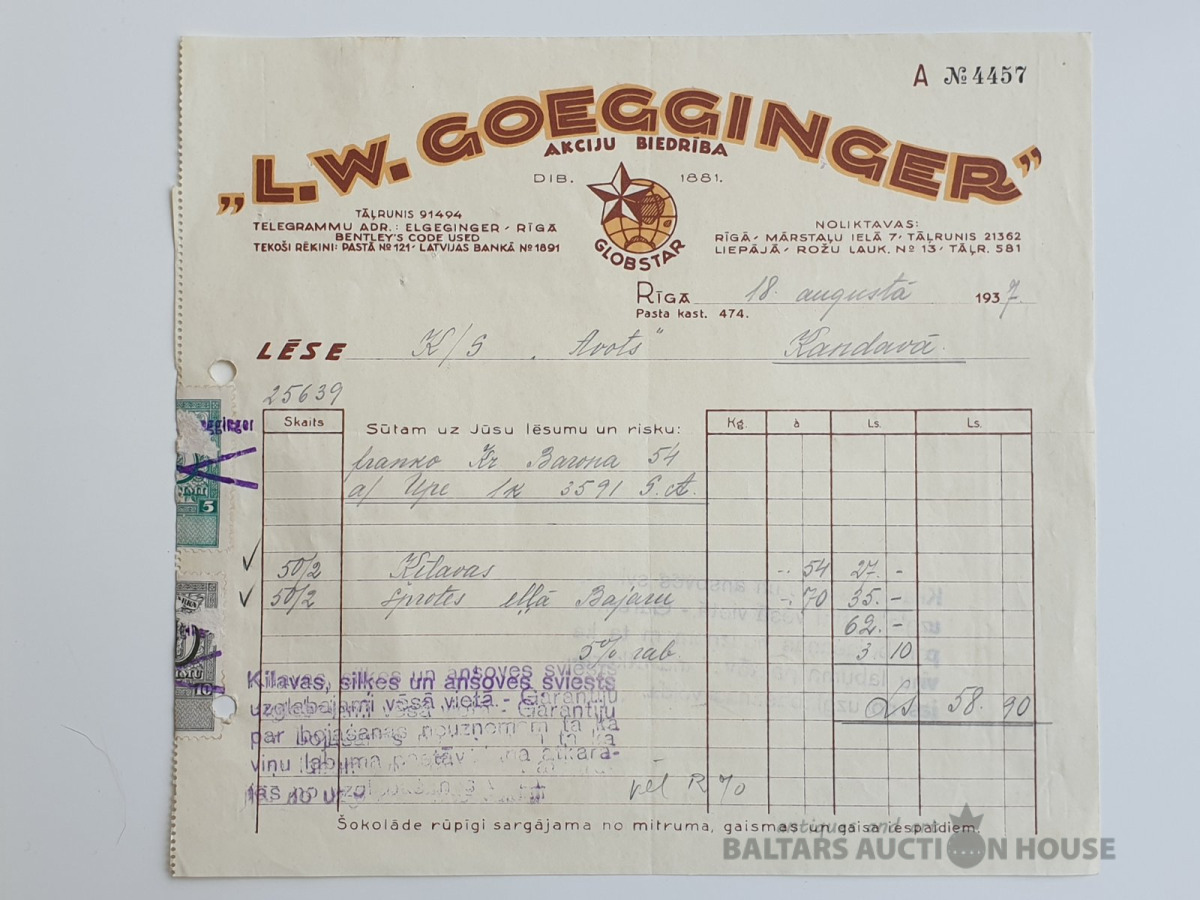 A № 4457
„L.W. GOEGGINGER”
AKCIJU BIEDRĪBA
DIB. 1881.
GLOBSTAR
TĀĻRUNIS 91494
TELEGRAMMU ADR.: ELGEGINGER - RĪGĀ
BENTLEY'S CODE USED
TEKOŠI RĒĶINI: PASTĀ № 121 - LATVIJAS BANKĀ № 1891
NOLIKTAVAS:
RĪGĀ - MĀRSTAĻU IELĀ 7 - TĀĻRUNIS 21362
LIEPĀJĀ - ROŽU LAUK. № 13 - TĀĻR. 581
RĪGĀ 18. augustā 1937.
Pasta kast. 474.
LĒSE K/S „Avots” Kandavā.
25639
Skaits Sūtam uz Jūsu lēsumu un risku: Kg. à Ls. Ls.
franko Kr Barona 54
a/ Upe 1x 3591 S.A.
50/2 Ķilavas -. 54 27. -
50/2 Šprotes eļļā Bajaru -. 70 35. -
62. -
5% rab 3 10
Ls 58. 90
egginger
5
10
Ķilavas, silķes un ansoves sviests
uzglabājami vēsā vietā. - Garantiju
par bojāšanās neuzņemam tā kā
viņu labuma atkarā-
R 70
Šokolāde rūpīgi sargājama no mitruma, gaismas un gaisa iespaidiem.
antiques and art
BALTARS AUCTION HOUSE